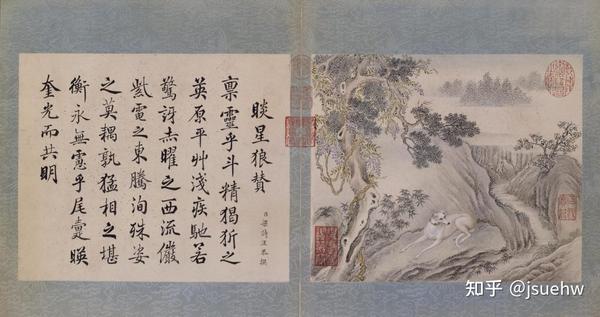 睒星狼贊
臣梁詩正恭撰
禀靈乎斗精猲之
英原平艸淺疾馳若
驚訝赤曜之西流儼
紫電之東騰洵殊姿
之莫耦孰猛相之堪
衡永無慮乎尾疐暎
奎光而共明
知乎 @jsuehw